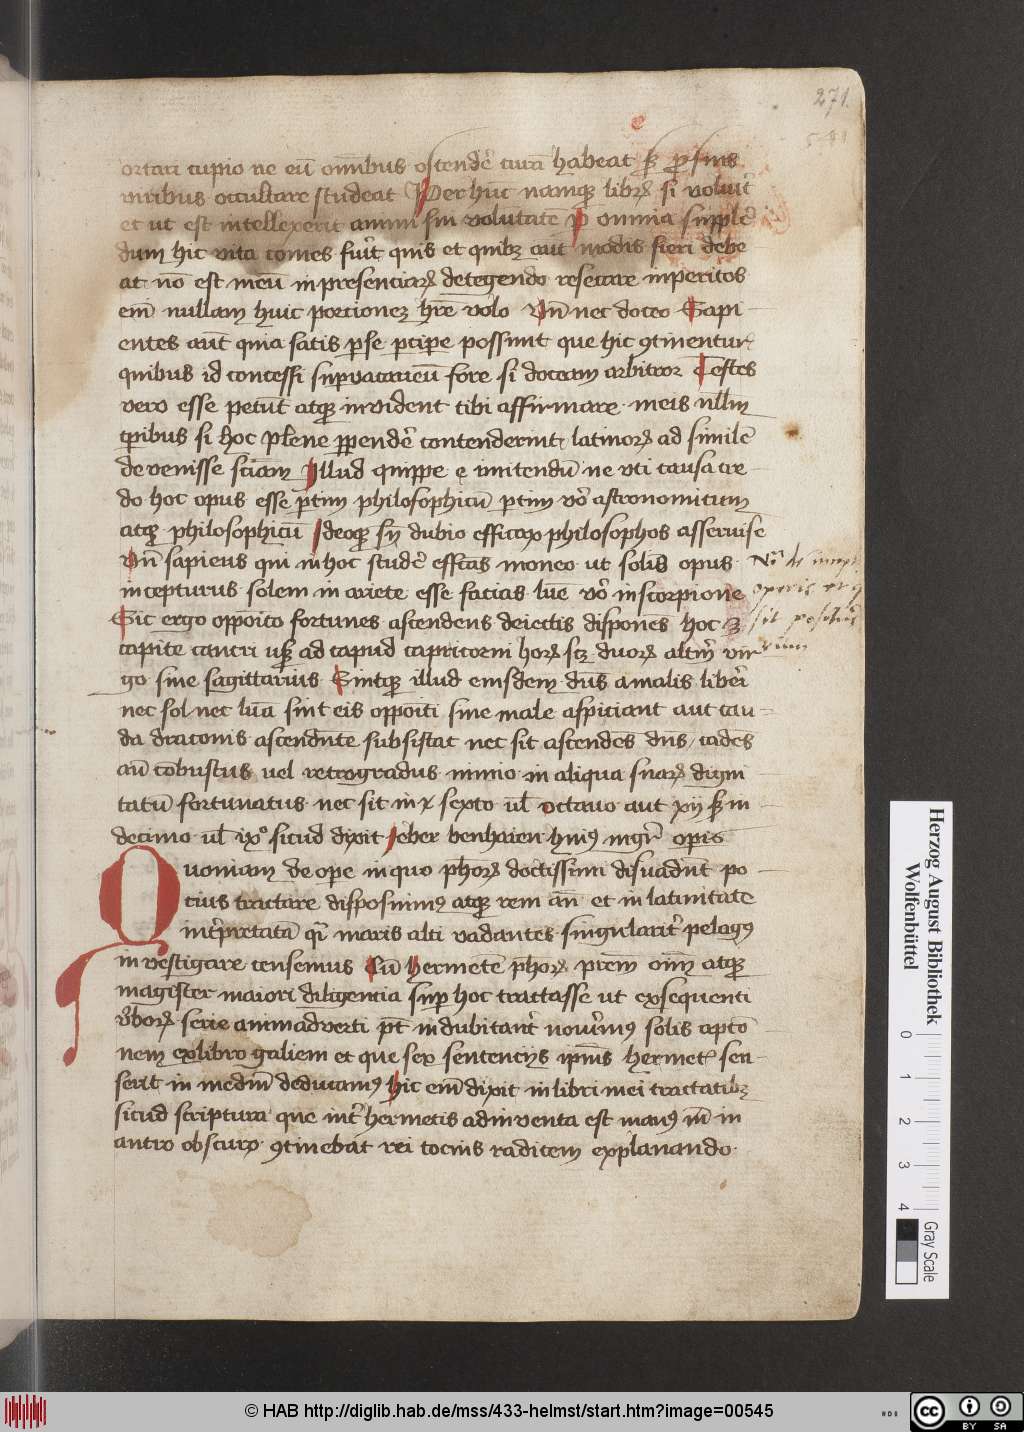 271
ortari cupio ne eū om̄ibus ostendē curā habeat sꝫ ꝓ suis
viribus occultare studeat Per huc namqꝫ librꝝ si voluit̓
et ut est intellexerit animi sui volūtatē ꝑ omnia supple
dum hic vita comes fuīt quis et quibꝫ caut̓ modis fieri debe
at nō est meū in presenciarꝝ detegendo resecare inperitos
em̄ nullam huic porcionez hr̄e volo Vn̄ nec doceo Sapi
entes aut̄ quia satis ꝑ se ꝑciꝑe possunt que hic ꝯtinentur
quibus id concessi supervacaneū fore si doceam arbitror Testes
vero esse petunt atqꝫ invident tibi affirmare meis ull'm
ꝑibus si hoc plene ꝑpendē contenderint latinorꝝ ad similē
devenisse sciam Illud quippe ē imitendū ne uti causa cre
do hoc opus esse ꝑtim philosophicū ꝑtim vō astronomicum
atqꝫ philosophicū Ideoqꝫ sn̄ dubio efficax philosophos asseruisse
Vn̄ sapiens qui in hoc studē effcās moneo ut solis opus
incepturus solem in ariete esse facias lune vō in scorpione
Sic ergo oppoito fortunes ascendens deiectis dispones hoc ꝫ
capite cancri usqꝫ ad capud capricorni horꝝ scꝫ duorꝝ altm̄ vir
go sine sagittarius Sintqꝫ illud eiusdem dn̄s a malis libēi
nec sol nec lūa sint eis oppoiti sine male aspiciant aut cau
da draconis ascendente subsistat nec sit ascendēs dn̄s cadēs
aū combustus vel retrogradus nimio in aliqua suarꝝ digni
tatū fortunatus nec sit in x sexto ul octavo aut xij sꝫ in
decimo ul ix° sicud dixit Jeber benhaien huiꝰ mgr̄i opis
Quoniam de ope in quo phorꝝ doctissimi disvadūt po
cius tractare disposuimꝰ atqꝫ rem an̄ et in latinitate
int̓pretatā qr̄ maris alti vadantes singularit̓ pelagꝰ
investigare censemus Cū hermetē phorꝝ prem om̄ atqꝫ
magister maiori diligencia sup hoc tractasse ut exsequenti
v̓borꝝ serie animadverti pt̄ indubitant̓ novimꝰ solis aptō
nem ex libro galiem et que sex sentencijs ipius hermet̓ sen
serit in mediū deducamꝰ hic em̄ dixit in libri mei tractatibꝫ
sicud scriptura que int̓ hermetis adinventa est manꝰ in̄ in
antro obscuro ꝯtinebat rei tocius radicem explanando
Herzog August Bibliothek
Wolfenbüttel
0 1 2 3 4
Gray Scale
© HAB http://diglib.hab.de/mss/433-helmst/start.htm?image=00545
HAB
cc BY SA